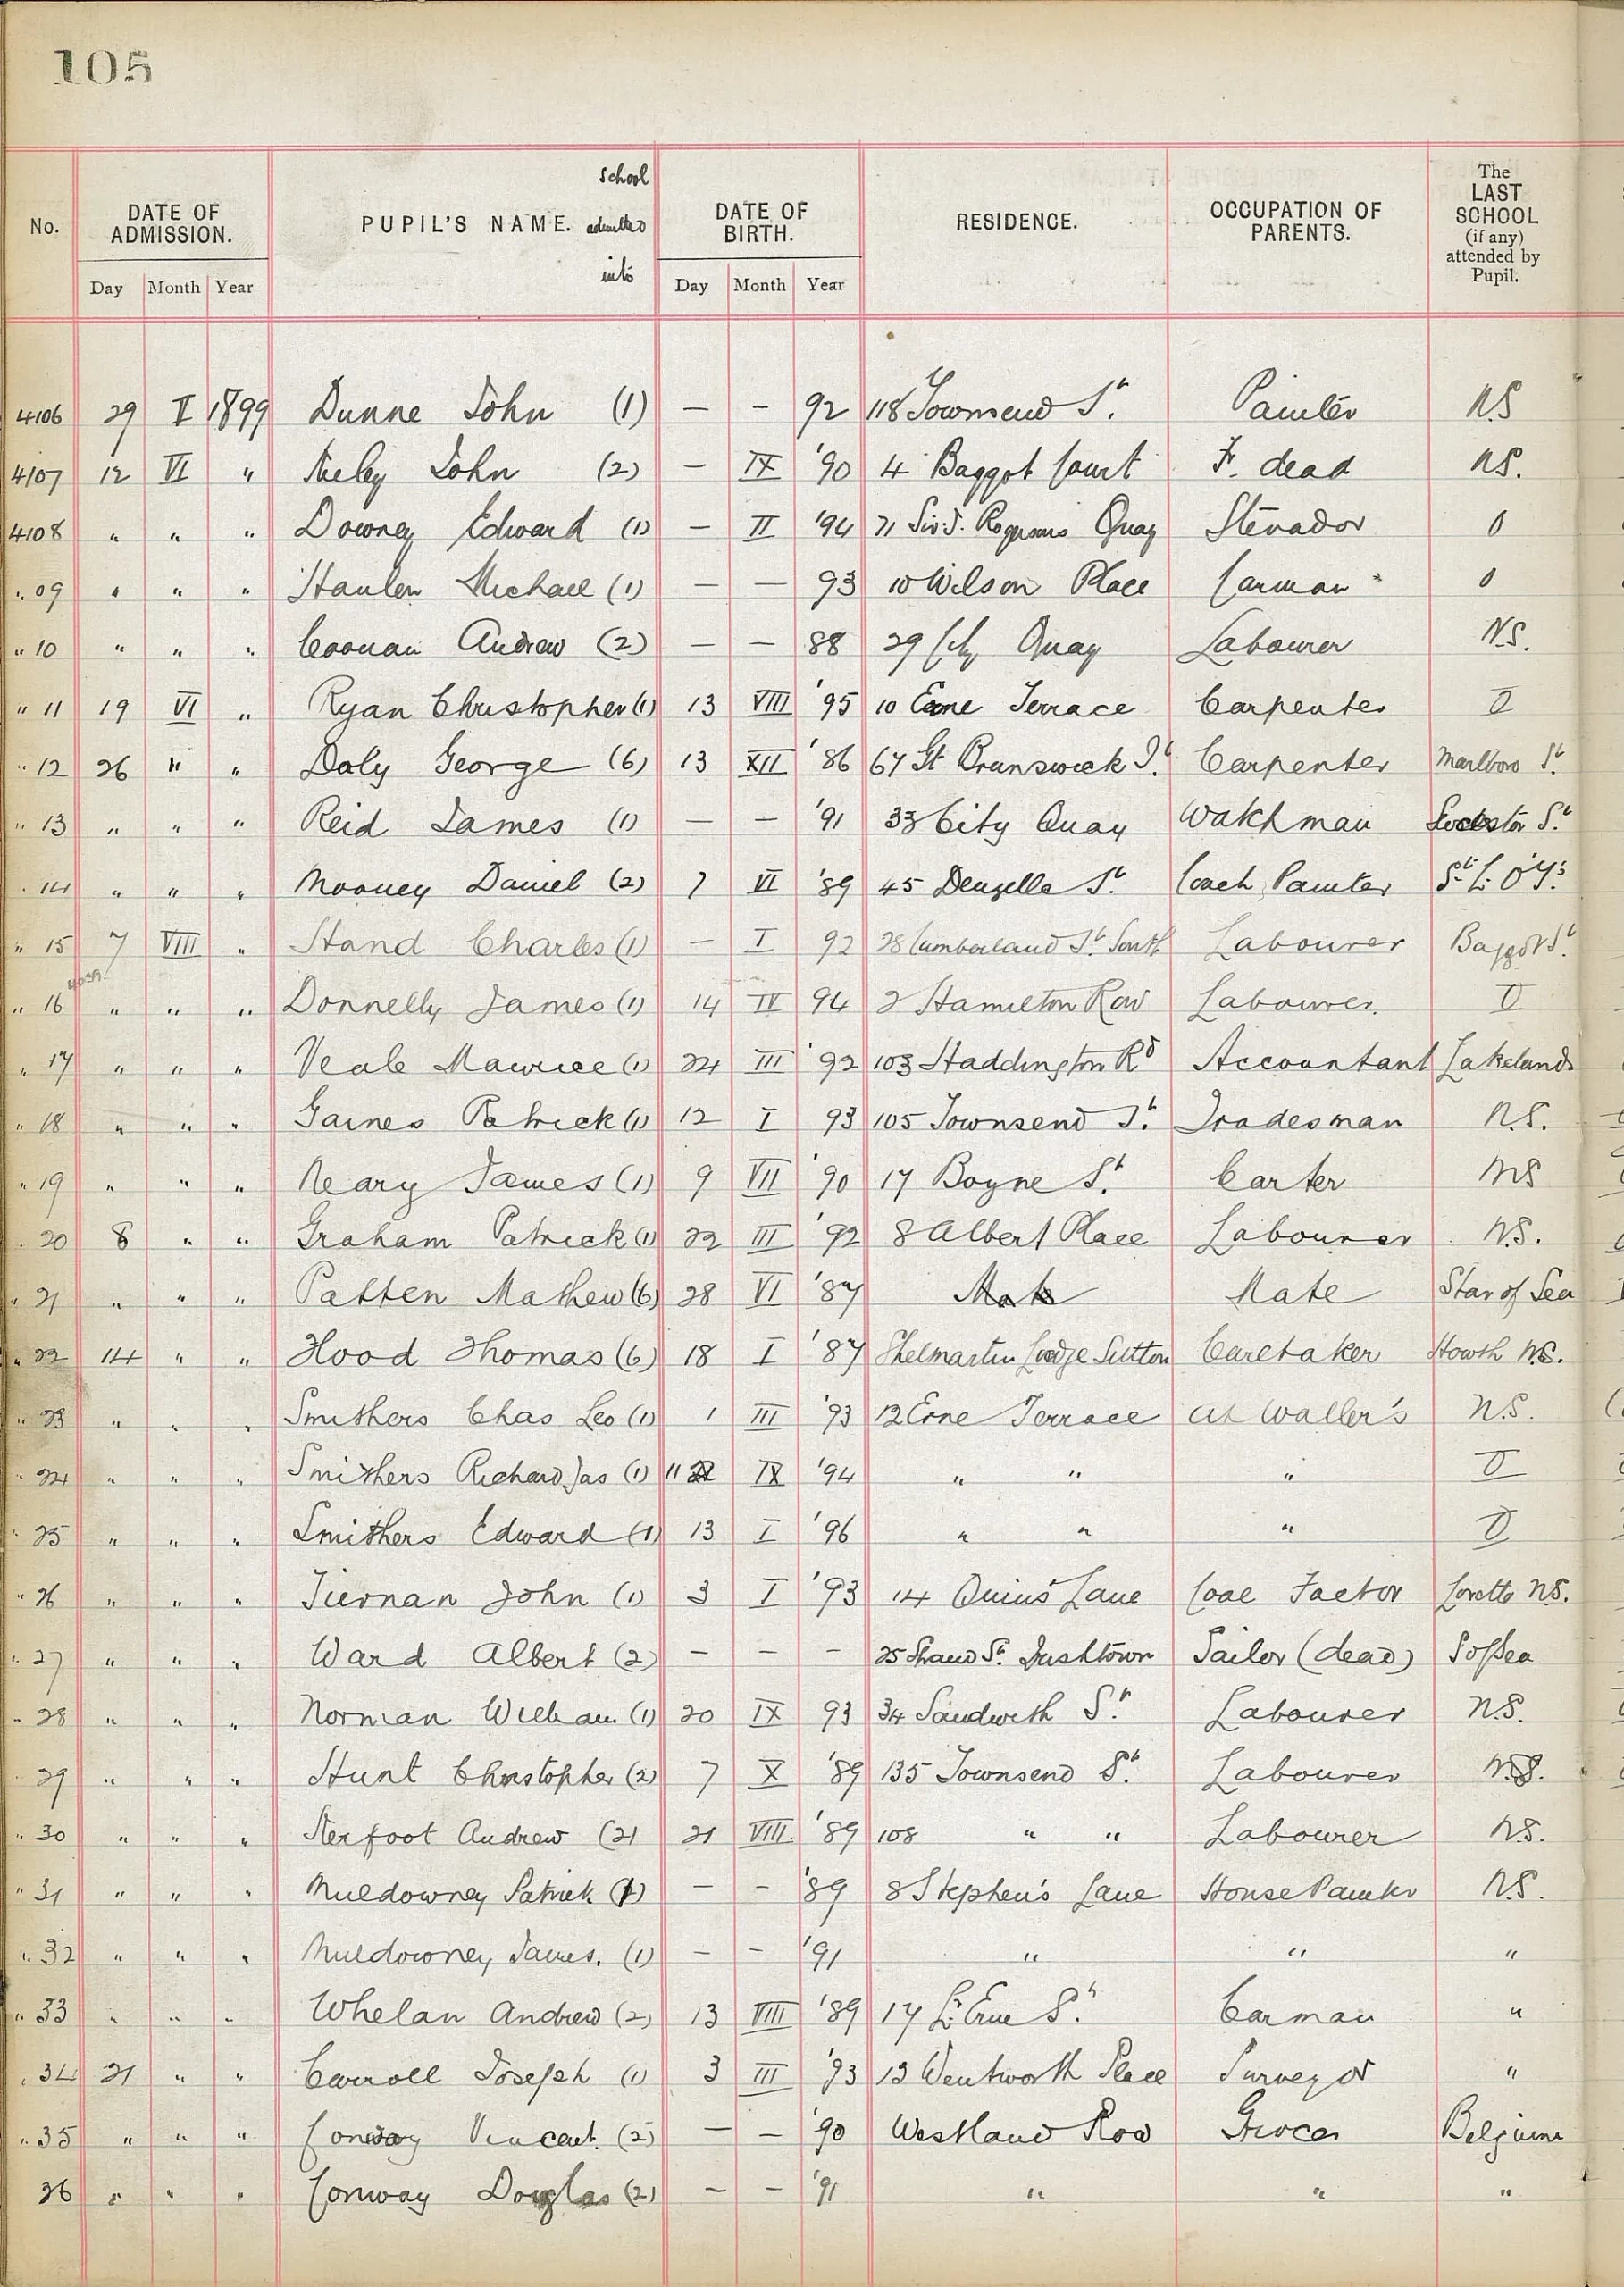 105
No. DATE OF ADMISSION. PUPIL'S NAME. school admitted into DATE OF BIRTH. RESIDENCE. OCCUPATION OF PARENTS. The LAST SCHOOL (if any) attended by Pupil.
Day Month Year Day Month Year
4106 29 V 1899 Dunne John (1) — — 92 118 Townsend St. Painter N.S
4107 12 VI " John (2) — IX '90 4 Baggot Court F. dead N.S.
4108 " " " Downey Edward (1) — II '94 71 Sir J. Rogersons Quay Stevador 0
" 09 " " " Hanlon Michael (1) — — 93 10 Wilson Place Carman 0
" 10 " " " Andrew (2) — — 88 29 City Quay Labourer N.S.
" 11 19 VI " Ryan Christopher (1) 13 VIII '95 10 Erne Terrace Carpenter 0
" 12 26 " " Daly George (6) 13 XII '86 67 Gt Brunswick St. Carpenter Marlboro St.
" 13 " " " Reid James (1) — — '91 33 City Quay Watchman St.
" 14 " " " Mooney Daniel (2) 7 VI '89 45 Denzelle St. Coach Painter St. L. O'T's.
" 15 7 VIII " Hand Charles (1) — I 92 28 Cumberland St. South Labourer Baggot St.
" 16 " " " Donnelly James (1) 14 IV 94 2 Hamilton Row Labourer. 0
" 17 " " " Veale Maurice (1) 24 III '92 103 Haddington Rd Accountant Lakelands
" 18 " " " Gaines Patrick (1) 12 I 93 105 Townsend St. Tradesman N.S.
" 19 " " " Neary James (1) 9 VII '90 17 Boyne St. Carter NS
" 20 8 " " Graham Patrick (1) 22 III '92 8 Albert Place Labourer N.S.
" 21 " " " Patten Mathew (6) 28 VI '87 Mate Mate Star of Sea
" 22 14 " " Hood Thomas (6) 18 I '87 Shelmartin Lodge Sutton Caretaker Howth N.S.
" 23 " " " Smithers Chas Leo (1) 1 III '93 12 Erne Terrace at Waller's N.S.
" 24 " " " Smithers Richard Jas (1) 11 IX '94 " " " 0
" 25 " " " Smithers Edward (1) 13 I '96 " " " 0
" 26 " " " Tiernan John (1) 3 I '93 14 Quins Lane Coal Factor Loretto N.S.
" 27 " " " Ward Albert (2) — — — 25 St. Irishtown Sailor (dead) S of Sea
" 28 " " " Norman William (1) 20 IX 93 34 Sandwith St. Labourer N.S.
" 29 " " " Hunt Christopher (2) 7 X '89 135 Townsend St. Labourer N.S.
" 30 " " " Kerfoot Andrew (2) 21 VIII '89 108 " " Labourer N.S.
" 31 " " " Muldowney Patrick (1) — — '89 8 Stephen's Lane House Painter N.S.
" 32 " " " Muldowney James. (1) — — '91 " " "
" 33 " " " Whelan Andrew (2) 13 VIII '89 17 Lr. Erne St. Carman "
" 34 21 " " Carroll Joseph (1) 3 III '93 13 Wentworth Place Surveyor "
" 35 " " " Conway Vincent. (2) — — '90 Westland Row Grocer Belgium
36 " " " Conway Douglas (2) — — '91 " " "